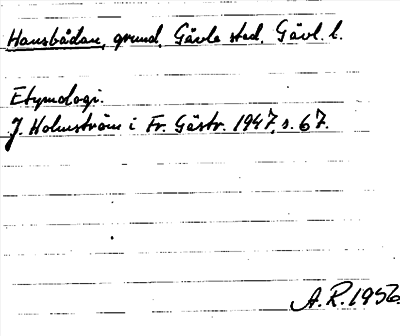 Hansbådan, grund, Gävle stad. Gävl. l.
Etymologi.
J. Holmström i Fr. Gästr. 1947, s. 67.
A. R. 1956.